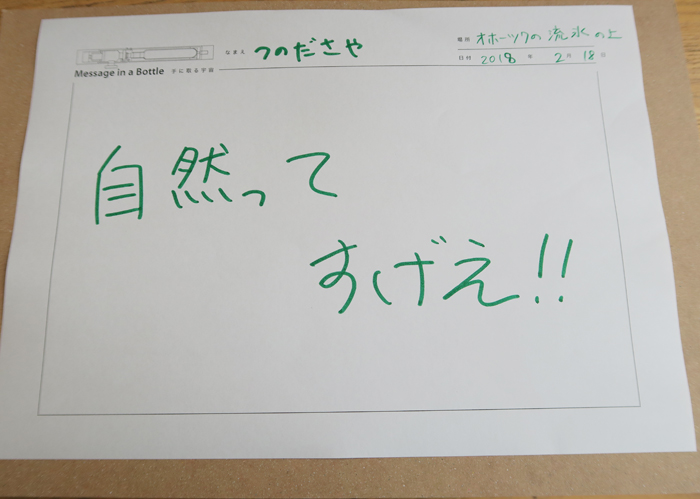 なまえ つのださや
場所 オホーツクの流氷の上
日付 2018年 2月 18日
Message in a Bottle 手に取る宇宙
自然って
すげえ!!